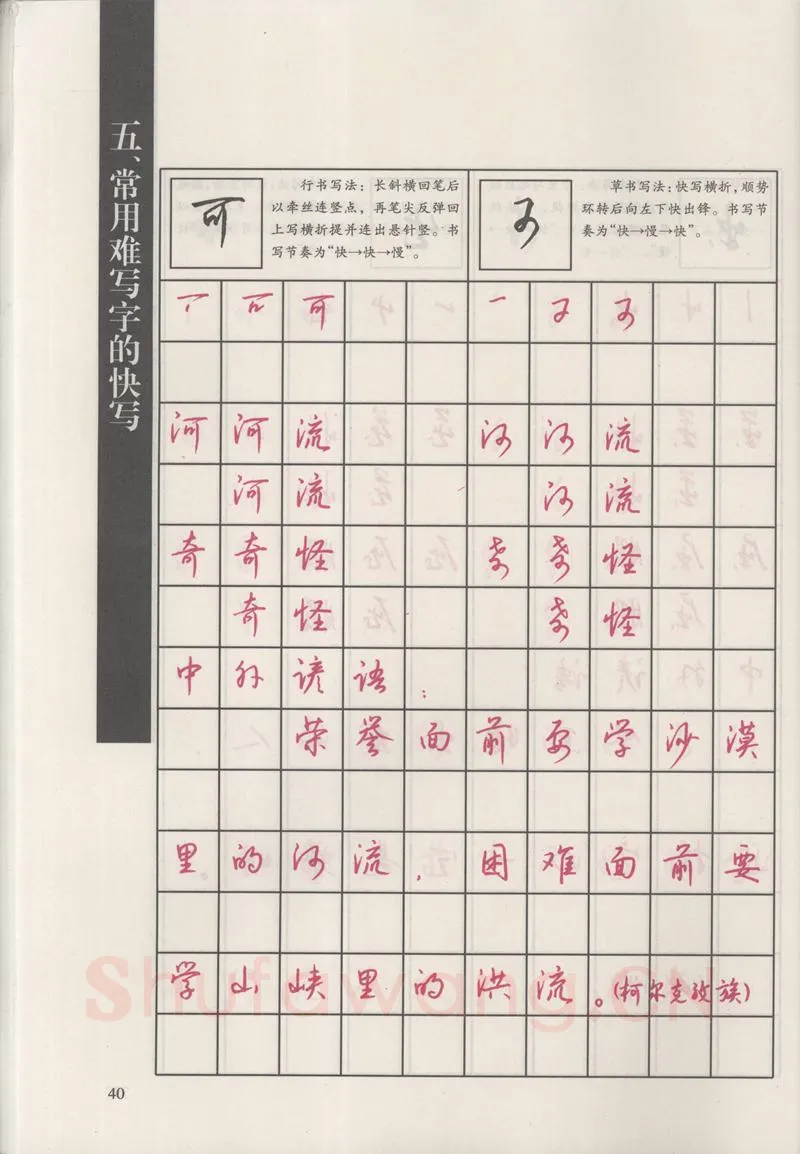 五、常用难写字的快写
可
行书写法：长斜横回笔后
以牵丝连竖点，再笔尖反弹回
上写横折提并连出悬针竖。书
写节奏为“快→快→慢”。
可
草书写法：快写横折，顺势
环转后向左下快出锋。书写节
奏为“快→慢→快”。
可 可
河河流 河河流
河流 河流
奇奇怪 奇奇怪
奇怪 奇怪
中外谚语：
荣誉面前要学沙漠
里的河流，困难面前要
学山峡里的洪流。(柯尔克孜族)
Shufawang.CN
40